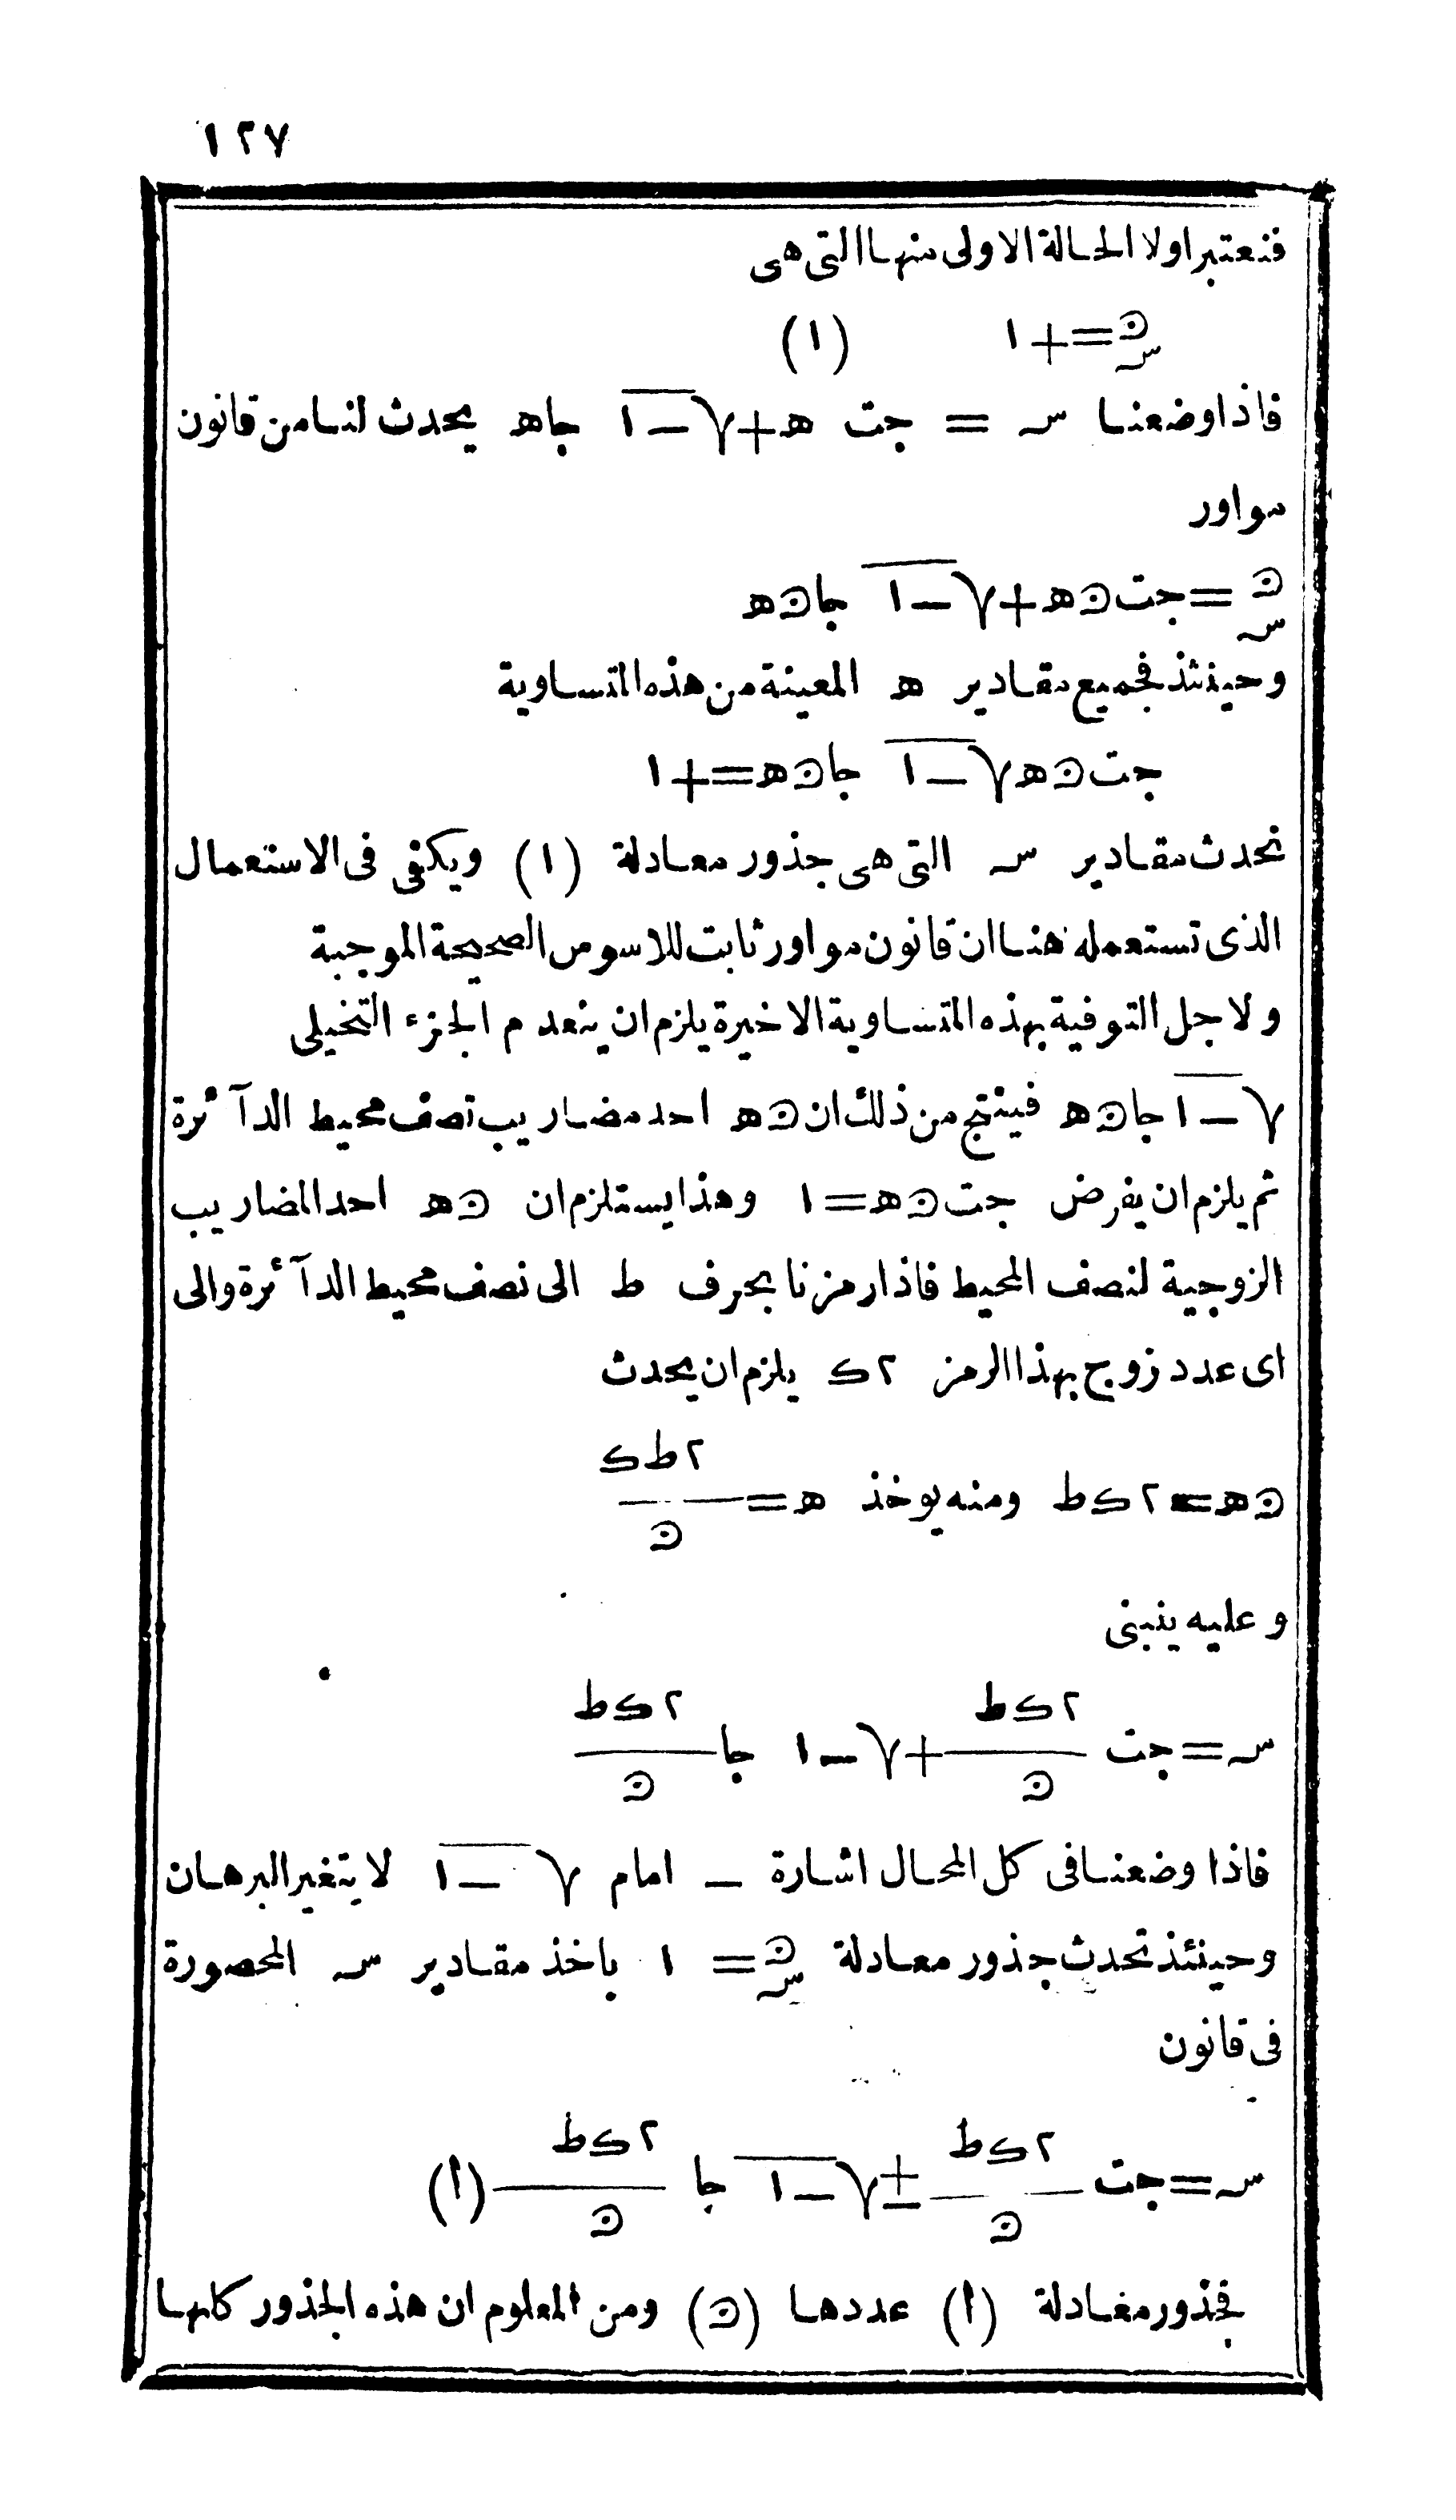 ١٢٧
فنعتبر اولا الحالة الاولى منها التى هى
س^ن = + ١ (١)
فاذا وضعنا س = جت ه + √−١ جا ه يحدث لنا من قانون
مواور
س^ن = جت ن ه + √−١ جا ن ه
وحينئذ فجميع مقادير ه المعينة من هذه المتساوية
جت ن ه √−١ جا ن ه = + ١
تحدث مقادير س التى هى جذور معادلة (١) ويكفى فى الاستعمال
الذى تستعمله هنا ان قانون مواور ثابت للاسوس الصحيحة الموجبة
ولاجل التوفية بهذه المتساوية الاخيرة يلزم ان ينعدم الجزء التخيلى
√−١ جا ن ه فينتج من ذلك ان ن ه احد مضاريب نصف محيط الدآئرة
ثم يلزم ان يفرض جت ن ه = ١ وهذا يستلزم ان ن ه احد المضاريب
الزوجية لنصف المحيط فاذا رمزنا بحرف ط الى نصف محيط الدآئرة والى
اى عدد زوج بهذا الرمز ٢ك يلزم ان يحدث
ن ه = ٢ك ط ومنه يوخذ ه = ٢ط ك / ن
وعليه ينبنى
س = جت ٢ك ط / ن + √−١ جا ٢ك ط / ن
فاذا وضعنا فى كل المحال اشارة − امام √−١ لا يتغير البرهان
وحينئذ تحدث جذور معادلة س^ن = ١ باخذ مقادير س المحصورة
فى قانون
س = جت ٢ك ط / ن ± √−١ جا ٢ك ط / ن (أ)
فجذور معادلة (أ) عددها (ن) ومن المعلوم ان هذه الجذور كلها